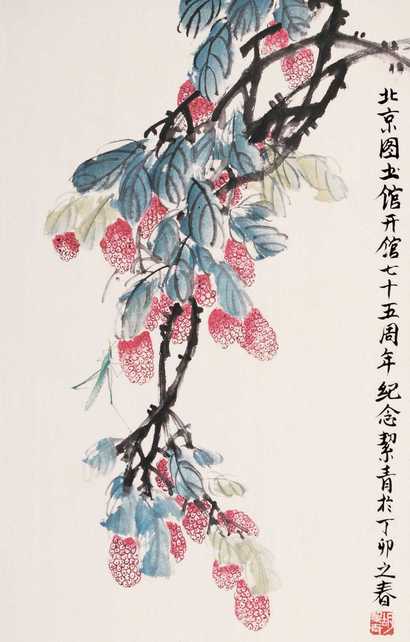 北京图书馆开馆七十五周年纪念絜青於丁卯之春